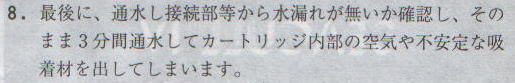 8. 最後に、通水し接続部等から水漏れが無いか確認し、その
まま3分間通水してカートリッジ内部の空気や不安定な吸
着材を出してしまいます。